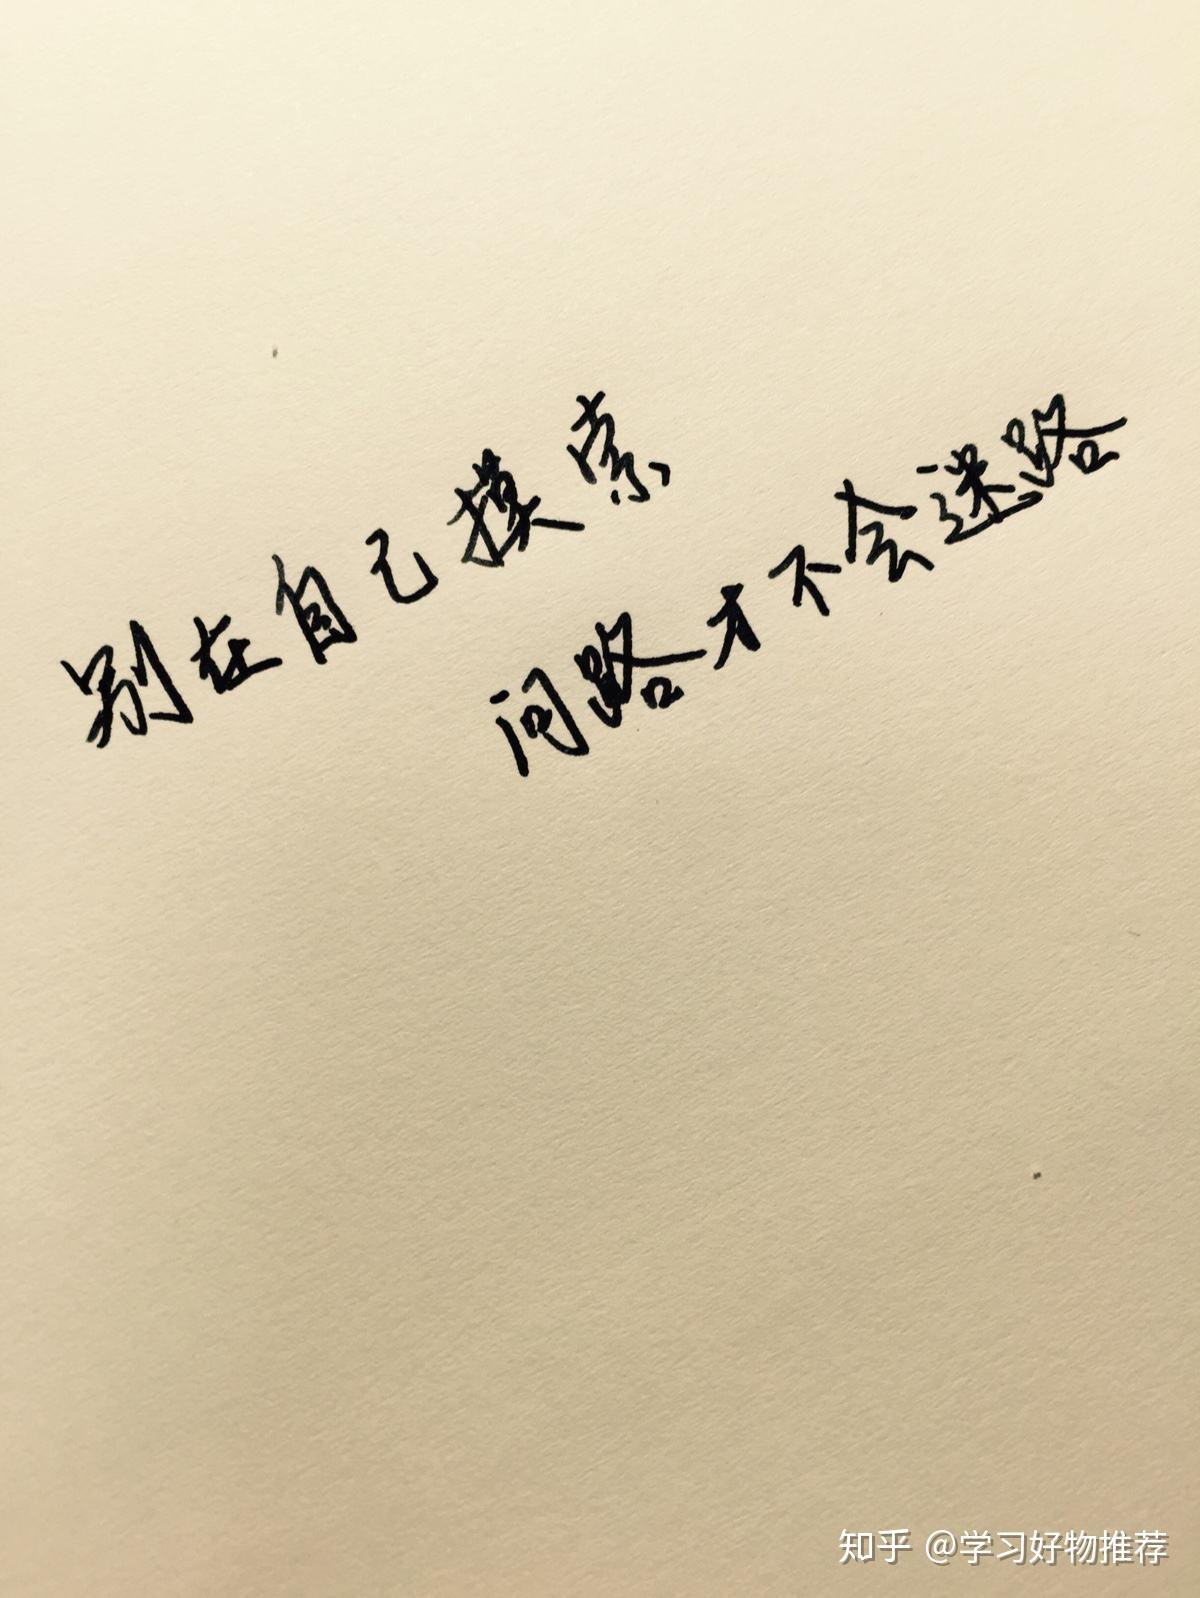 别在自己摸索
问路才不会迷路
知乎 @学习好物推荐